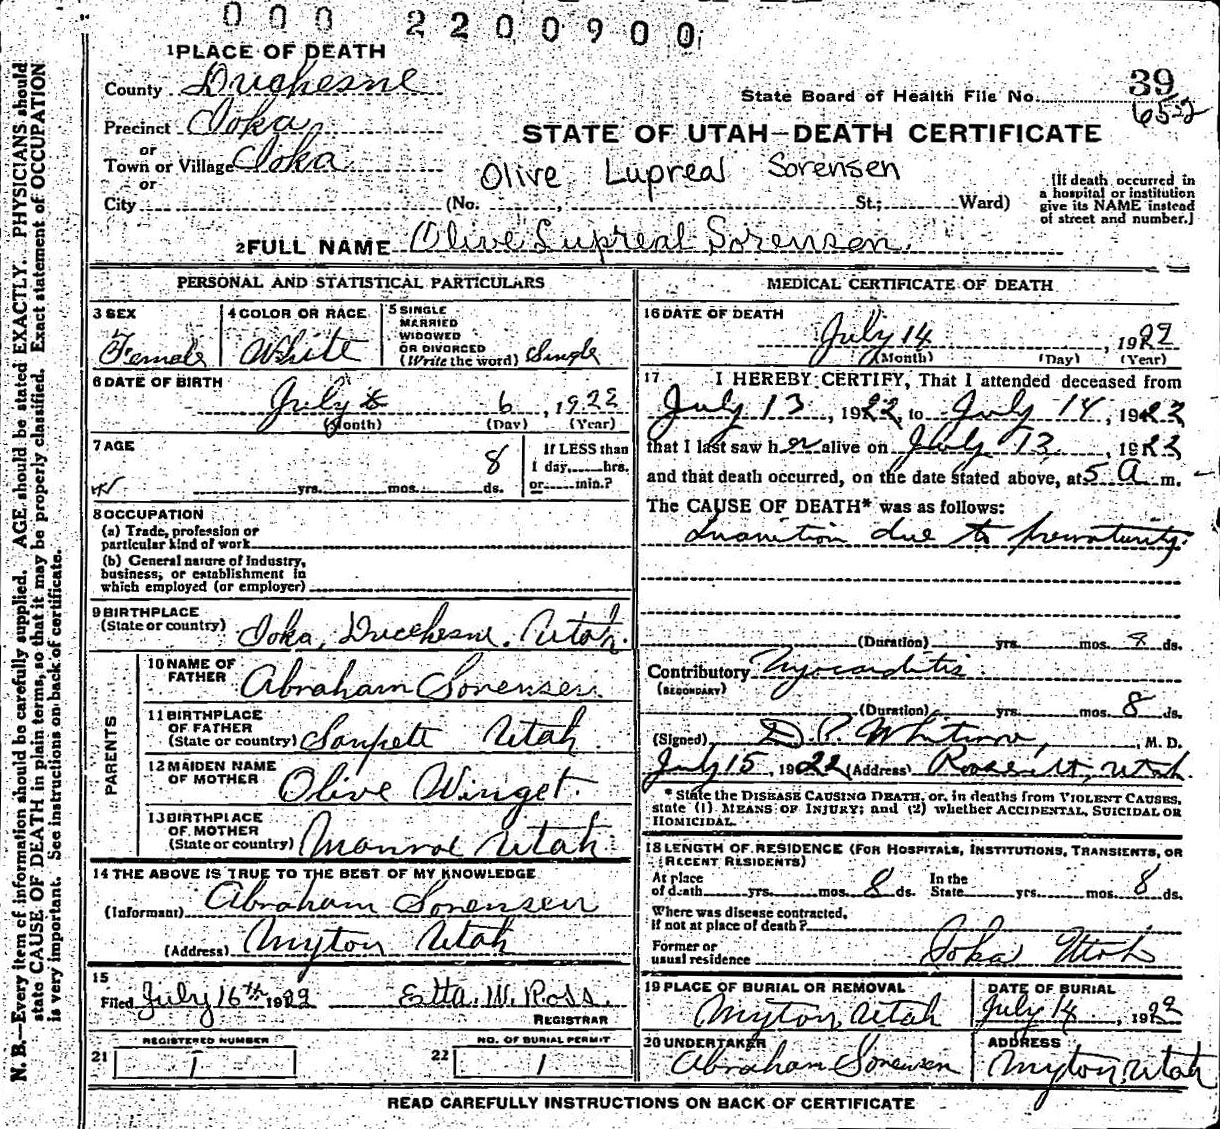 0 0 0 2 2 0 0 9 0 0
1 PLACE OF DEATH
County Duchesne
Precinct Ioka
or
Town or Village Ioka
or
City (No. St.; Ward)
39
State Board of Health File No. 652
STATE OF UTAH—DEATH CERTIFICATE
Olive Lupreal Sorensen
[If death occurred in
a hospital or institution
give its NAME instead
of street and number.]
2 FULL NAME Olive Lupreal Sorensen
PERSONAL AND STATISTICAL PARTICULARS
3 SEX
Female
4 COLOR OR RACE
White
5 SINGLE
MARRIED
WIDOWED
OR DIVORCED
(Write the word) Single
6 DATE OF BIRTH
July 6, 1922
(Month) (Day) (Year)
7 AGE
yrs. mos. 8 ds.
If LESS than
1 day, hrs.
or min.?
8 OCCUPATION
(a) Trade, profession or
particular kind of work
(b) General nature of industry,
business, or establishment in
which employed (or employer)
9 BIRTHPLACE
(State or country) Ioka, Ducchesne. Utah.
PARENTS
10 NAME OF
FATHER Abraham Sorensen.
11 BIRTHPLACE
OF FATHER
(State or country) Sanpete Utah
12 MAIDEN NAME
OF MOTHER Olive Winget.
13 BIRTHPLACE
OF MOTHER
(State or country) Monroe Utah
14 THE ABOVE IS TRUE TO THE BEST OF MY KNOWLEDGE
(Informant) Abraham Sorensen
(Address) Myton Utah
15
Filed July 16th 1922 Etta. W. Ross.
REGISTRAR
REGISTERED NUMBER
21 1
NO. OF BURIAL PERMIT
22 1
MEDICAL CERTIFICATE OF DEATH
16 DATE OF DEATH
July 14, 1922
(Month) (Day) (Year)
17 I HEREBY CERTIFY, That I attended deceased from
July 13, 1922, to July 14, 1922
that I last saw her alive on July 13, 1922
and that death occurred, on the date stated above, at 5 A m.
The CAUSE OF DEATH* was as follows:
Inanition due to prematurity.
(Duration) yrs. mos. 8 ds.
Contributory Myocarditis.
(SECONDARY)
(Duration) yrs. mos. 8 ds.
(Signed) D. P. Whitmore, M. D.
July 15, 1922 (Address) Roosevelt, Utah.
* State the DISEASE CAUSING DEATH, or, in deaths from VIOLENT CAUSES,
state (1) MEANS OF INJURY; and (2) whether ACCIDENTAL, SUICIDAL OR
HOMICIDAL.
18 LENGTH OF RESIDENCE (FOR HOSPITALS, INSTITUTIONS, TRANSIENTS, OR
RECENT RESIDENTS)
At place In the
of death yrs. mos. 8 ds. State yrs. mos. 8 ds.
Where was disease contracted,
if not at place of death?
Former or
usual residence Ioka Utah
19 PLACE OF BURIAL OR REMOVAL
Myton, Utah
DATE OF BURIAL
July 14, 1922
20 UNDERTAKER
Abraham Sorensen
ADDRESS
Myton, Utah
READ CAREFULLY INSTRUCTIONS ON BACK OF CERTIFICATE
N. B.—Every item of information should be carefully supplied. AGE should be stated EXACTLY. PHYSICIANS should
state CAUSE OF DEATH in plain terms, so that it may be properly classified. Exact statement of OCCUPATION
is very important. See instructions on back of certificate.